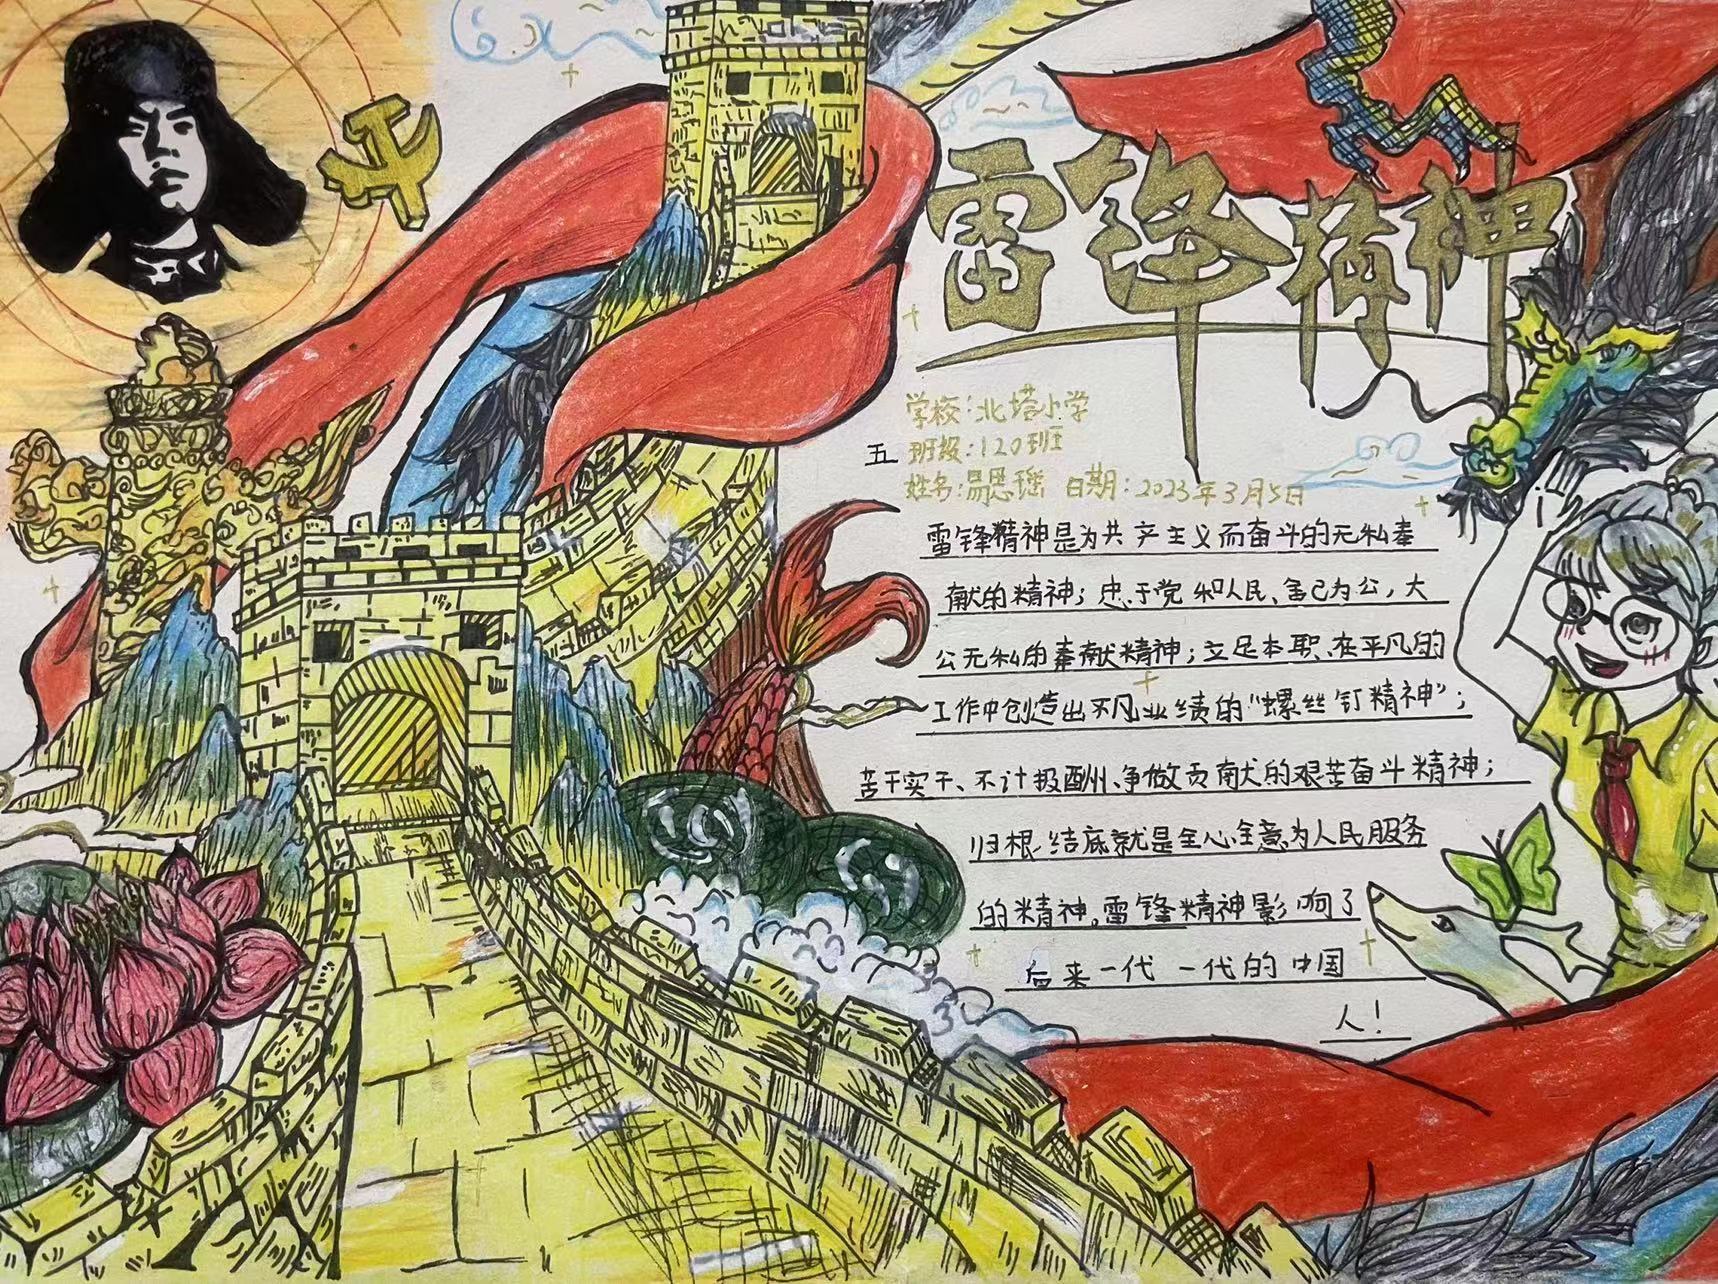 雷锋精神
学校:北塔小学
五 班级:120班
姓名:易思瑶 日期:2023年3月5日
雷锋精神是为共产主义而奋斗的无私奉
献的精神;忠于党和人民、舍己为公,大
公无私的奉献精神;立足本职、在平凡的
工作中创造出不凡业绩的“螺丝钉精神”;
苦干实干、不计报酬、争做贡献的艰苦奋斗精神;
归根结底就是全心全意为人民服务
的精神。雷锋精神影响了
后来一代一代的中国
人!